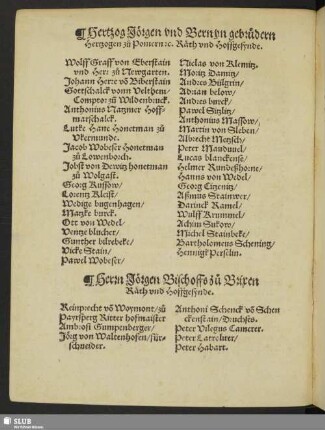 ¶Hertzog Jörgen vnd Bernyn gebrüdern
Hertzogen zů Pomern ꝛc. Räth vnd Hoffgesynde.
Wolff Graff von Eberstain
vnd Herr zů Newgarten.
Johann Herre võ Biberstain
Gottschalck vonn Velthem/
Comptor zů Wildenbruck.
Anthonius Natzmer Hoff-
marschalck.
Lutke Hane Honetman zů
Vkermunde.
Jacob Wobeser Honetman
zů Lowenborch.
Jobst von Dewitz honetman
zů Wolgast.
Georg Kussow/
Lorentz Kleist/
Wedige bugenhagen/
Matzke borck.
Ott von Wedel/
Ventze blucher/
Gunther bilrebeke/
Vicke Stain/
Pawel Wobeser/
Niclas von Klemitz.
Moritz Damitz/
Andres Bülgrin/
Adrian below/
Andres borck/
Pawel Sitzlitz/
Anthonius Massow/
Martin von Sleben/
Albrecht Metzsch/
Peter Manduuel/
Lucas blanckense/
Helmer Rundeßhorne/
Hanns von Wedel/
Georg Citzenitz/
Aßinus Stainwer/
Darinck Ramel/
Wulff Krummel/
Achim Sukow/
Michel Stainbeke/
Bartholomeus Schening/
Hennigk Perselin.
¶Herrn Jörgen Bischoffs zů Brixen
Räth vnd Hoffgesynde.
Reinprecht võ Woymont/zů
Payrsperg Ritter hofmaister
Ambrosi Gumpenberger/
Jörg von Waltenhofen/für-
schneider.
Anthoni Schenck võ Schen
ckenstain/Druchses.
Peter Vilegus Camerer.
Peter Latrelner/
Peter Habart.
SLUB